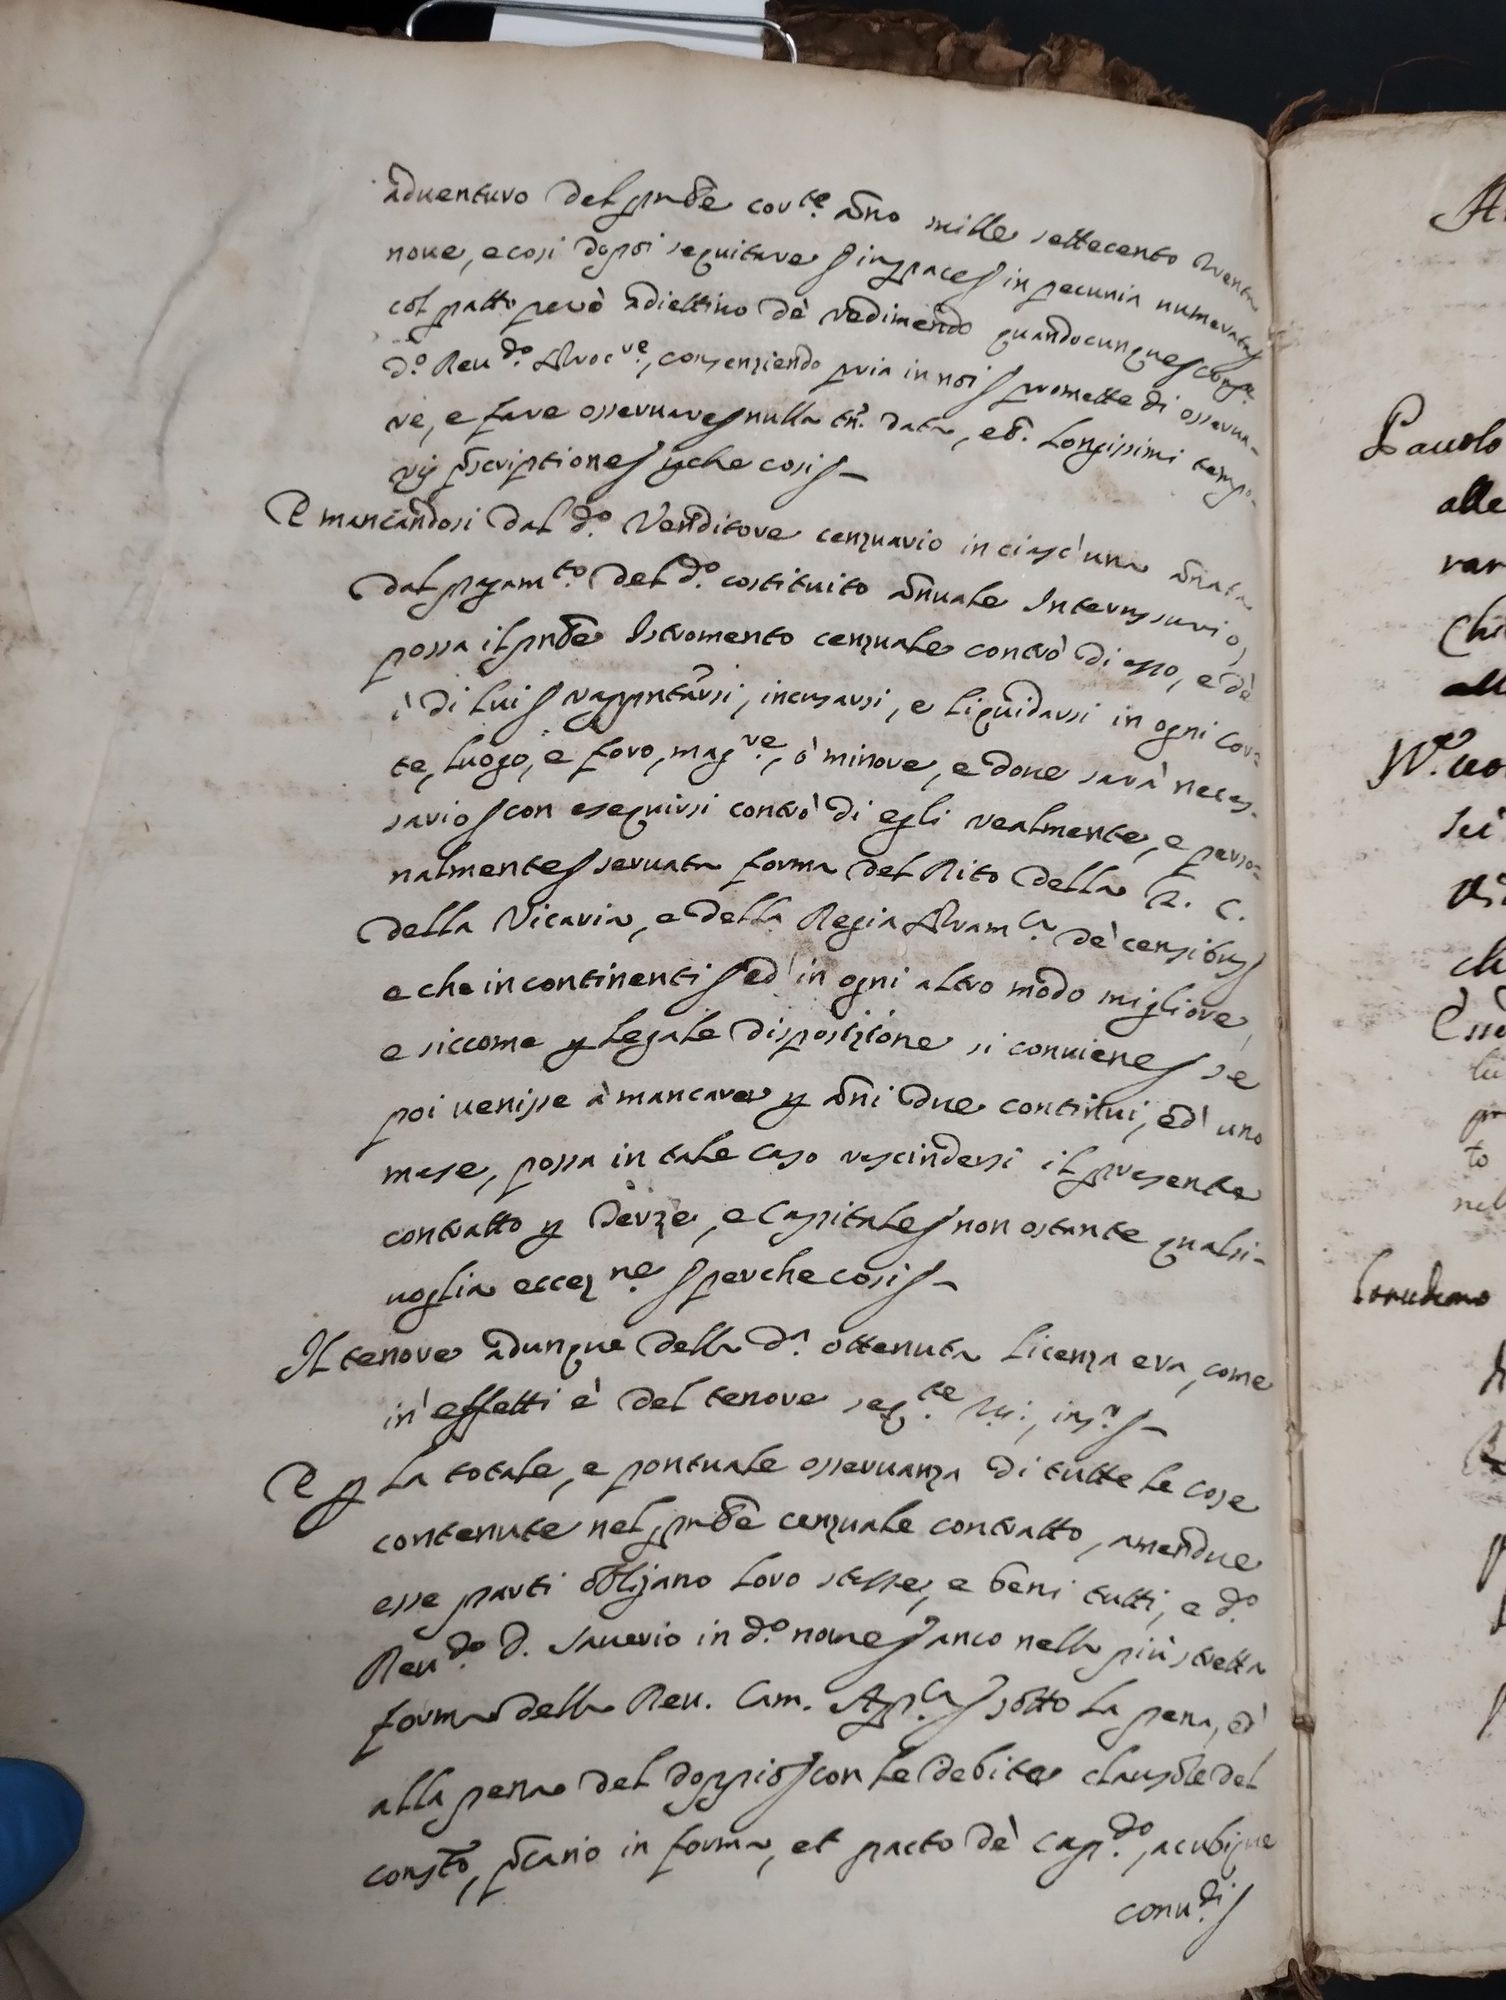 adventuro del pnte corrte. anno mille settecento trenta
nove, e così doppoi seguitare / in pace / in pecunia numerata /
col patto però adiettivo de redimendo quandocunque /
do. Revdo. Procre., consenziendo pria in noi / promette di osserva-
re, e fare osservare / nulla tn. data, et. longissimi tempo-
ris pscriptione / perche così / -
E mancandosi dal do. Venditore cenzuario in ciasc'una annata
dal pagamto. del do. costituito annuale Interusurio,
possa il pnte Istromento cenzuale contro di esso, e de
i di lui / rappntarsi, incusarsi, e liquidarsi in ogni Cor-
te, luogo, e foro, magre., o minore, e dove sarà neces-
sario / con eseguirsi contro di egli realmente, e perso-
nalmente / servata forma del Rito della G. C.
della Vicaria, e della Regia Pramca. de censibus /
e che incontinenti / ed in ogni altro modo migliore,
e siccome per legale disposizione si conviene / se
poi venisse à mancare per anni due continui, ed uno
mese, possa in tale caso rescindersi il presente
contratto per terze, e Capitale / non ostante qualsi-
voglia eccezne. / perche così / -
Il tenore adunque della da. ottenuta licenza era, come
in effetti è del tenore segte. Vt:, insr. / -
E per la totale, e pontuale osservanza di tutte le cose
contenute nel pnte cenzuale contratto, amendue
esse parti obligano loro stesse, e beni tutti, e do.
Revdo. D. Saverio in do. nome / anco nella più stretta
forma della Rev. Cam. Apca. / sotto la pena, ed
alla pena del doppio / con le debite clausole del
constto, pcario in forma, et pacto de Capdo., ac ubique
convdi /
Pauolo
alle